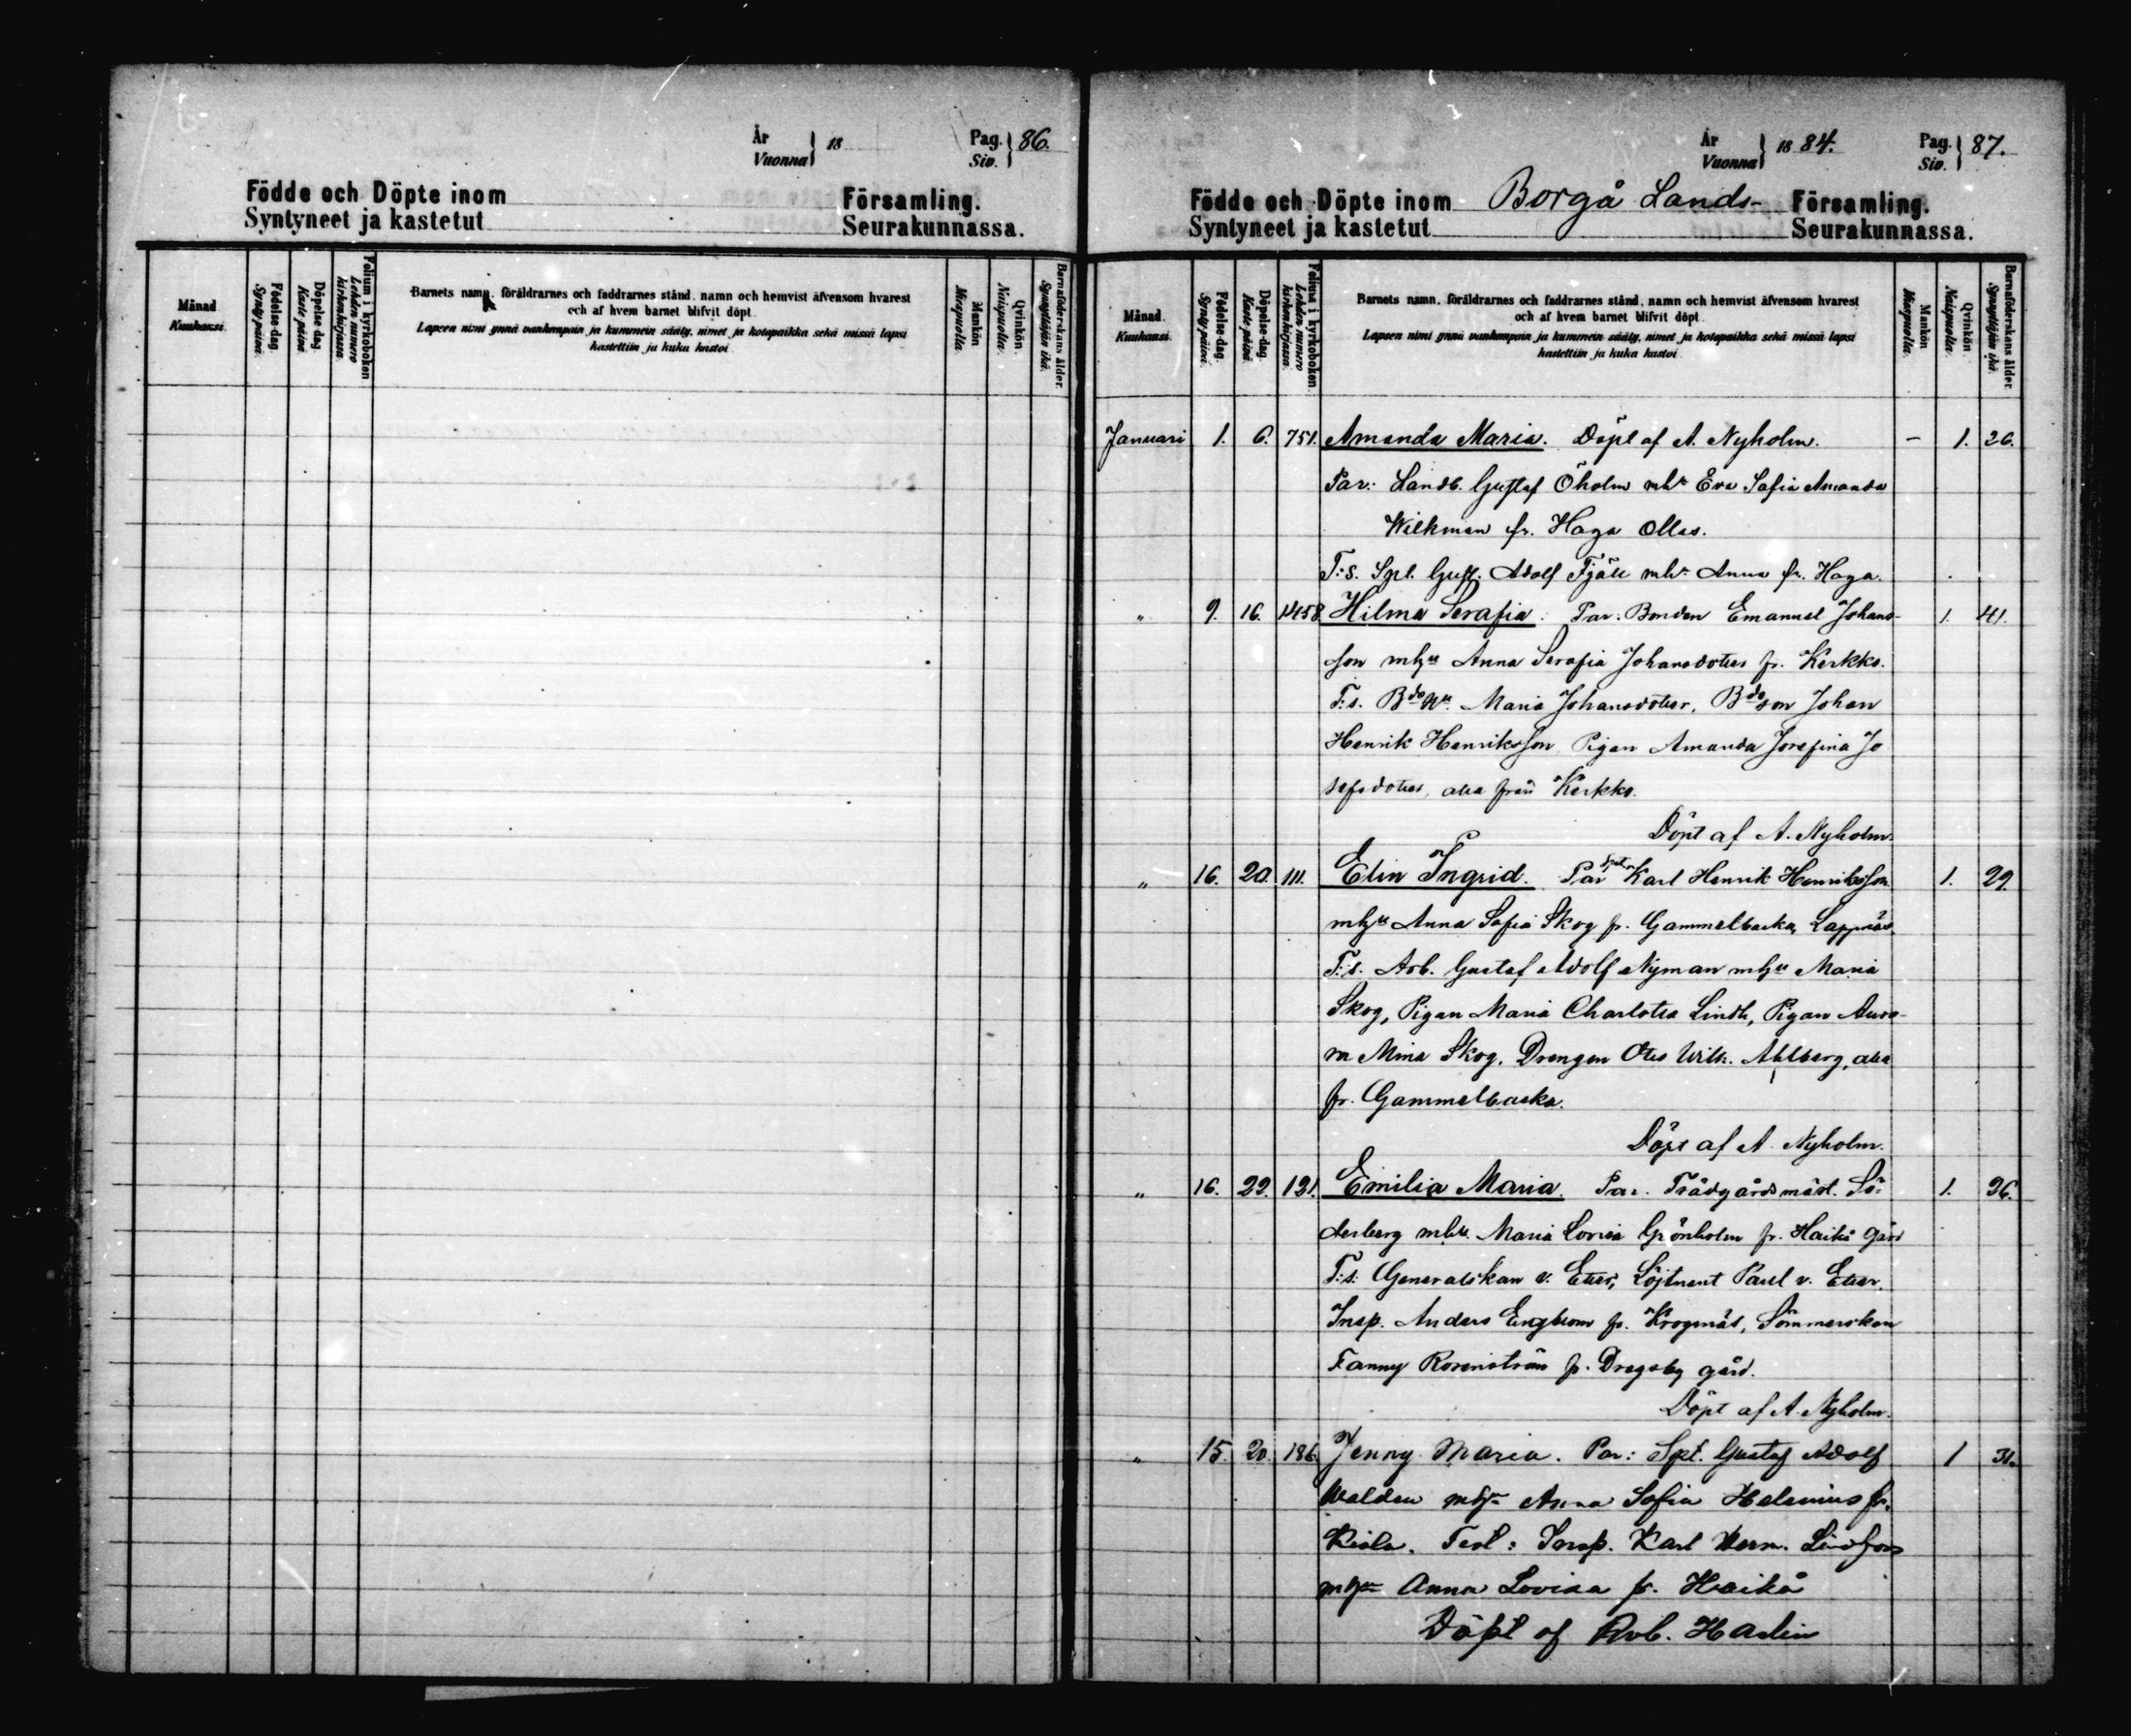 År
Vuonna } 18
Pag.
Siv. } 86.
Födde och Döpte inom Församling.
Syntyneet ja kastetut Seurakunnassa.
Månad
Kuukausi.
Födelse-dag.
Synty-päivä.
Döpelse-dag.
Kaste-päivä
Folium i kyrkoboken
Lehden numero kirkonkirjassa.
Barnets namn, föräldrarnes och faddrarnes stånd, namn och hemvist äfvensom hvarest
och af hvem barnet blifvit döpt.
Lapsen nimi ynnä vanhempain ja kummein sääty, nimet ja kotopaikka sekä missä lapsi
kastettiin ja kuka kastoi
Mankön
Miespuolta.
Qvinkön.
Naispuolta.
Barnaföderskans ålder.
Synnyttäjän ikä.
År
Vuonna } 1884.
Pag.
Siv. } 87.
Födde och Döpte inom Borgå Lands- Församling.
Syntyneet ja kastetut Seurakunnassa.
Månad.
Kuukausi.
Födelse-dag.
Synty-päivä.
Döpelse-dag.
Kaste-päivä
Folium i kyrkoboken.
Lehden numero kirkonkirjassa.
Barnets namn, föräldrarnes och faddrarnes stånd, namn och hemvist äfvensom hvarest
och af hvem barnet blifvit döpt.
Lapsen nimi ynnä vanhempain ja kummein sääty, nimet ja kotopaikka sekä missä lapsi
kastettiin ja kuka kastoi
Mankön
Miespuolta.
Qvinkön
Naispuolta.
Barnaföderskans ålder.
Synnyttäjän ikä.
Januari 1. 6. 751. Amanda Maria. Döpt af A. Nyholm. – 1. 26.
Par: Landb. Gustaf Öholm mhu Eva Sofia Amanda
Wilkman fr. Haga Ollas.
T:s. Spl. Gust. Adolf Fjäll mhu Anna fr. Haga.
" 9. 16. 1458. Hilma Serafia. Par: Bonden Emanuel Johans- 1. 41.
son mhu Anna Serafia Johansdotter fr. Kerkko.
T:s. Maria Johansdotter, Bdeson Johan
Henrik Henriksson Pigan Amanda Josefina Jo
sefsdotter, alla från Kerkko.
Döpt af A. Nyholm.
" 16. 20. 111. Elin Ingrid. Par Spt. Karl Henrik Henriksson 1. 29.
mhu Anna Sofia Skog fr. Gammelbacka, Lappnäs.
T:s. Arb. Gustaf Adolf Nyman mhu Maria
Skog, Pigan Maria Charlotta Lindh, Pigan Auro-
ra Mina Skog, Drengen Otto Wilh. Ahlberg, alla
fr. Gammelbacka.
Döpt af A. Nyholm.
" 16. 22. 121. Emilia Maria. Par. Trädgårdsmäst. Sö- 1. 26.
derberg mhu Maria Lovisa Grönholm fr. Haiko gård
T:s: Generalskan v. Etter, Löjtnant Paul v. Etter.
Insp. Anders Engblom fr. Krogsnäs, Sömmerskan
Fanny Rosenström fr. Dragsby gård.
Döpt af A. Nyholm.
" 15. 20. 186. Jenny Maria. Par: Spt. Gustaf Adolf 1 31.
Walden mhu Anna Sofia Helenius fr.
Kiala. Test: Insp. Karl Herm. Lindfors
mhu Anna Lovisa fr. Haikå
Döpt af Rob. Hartin